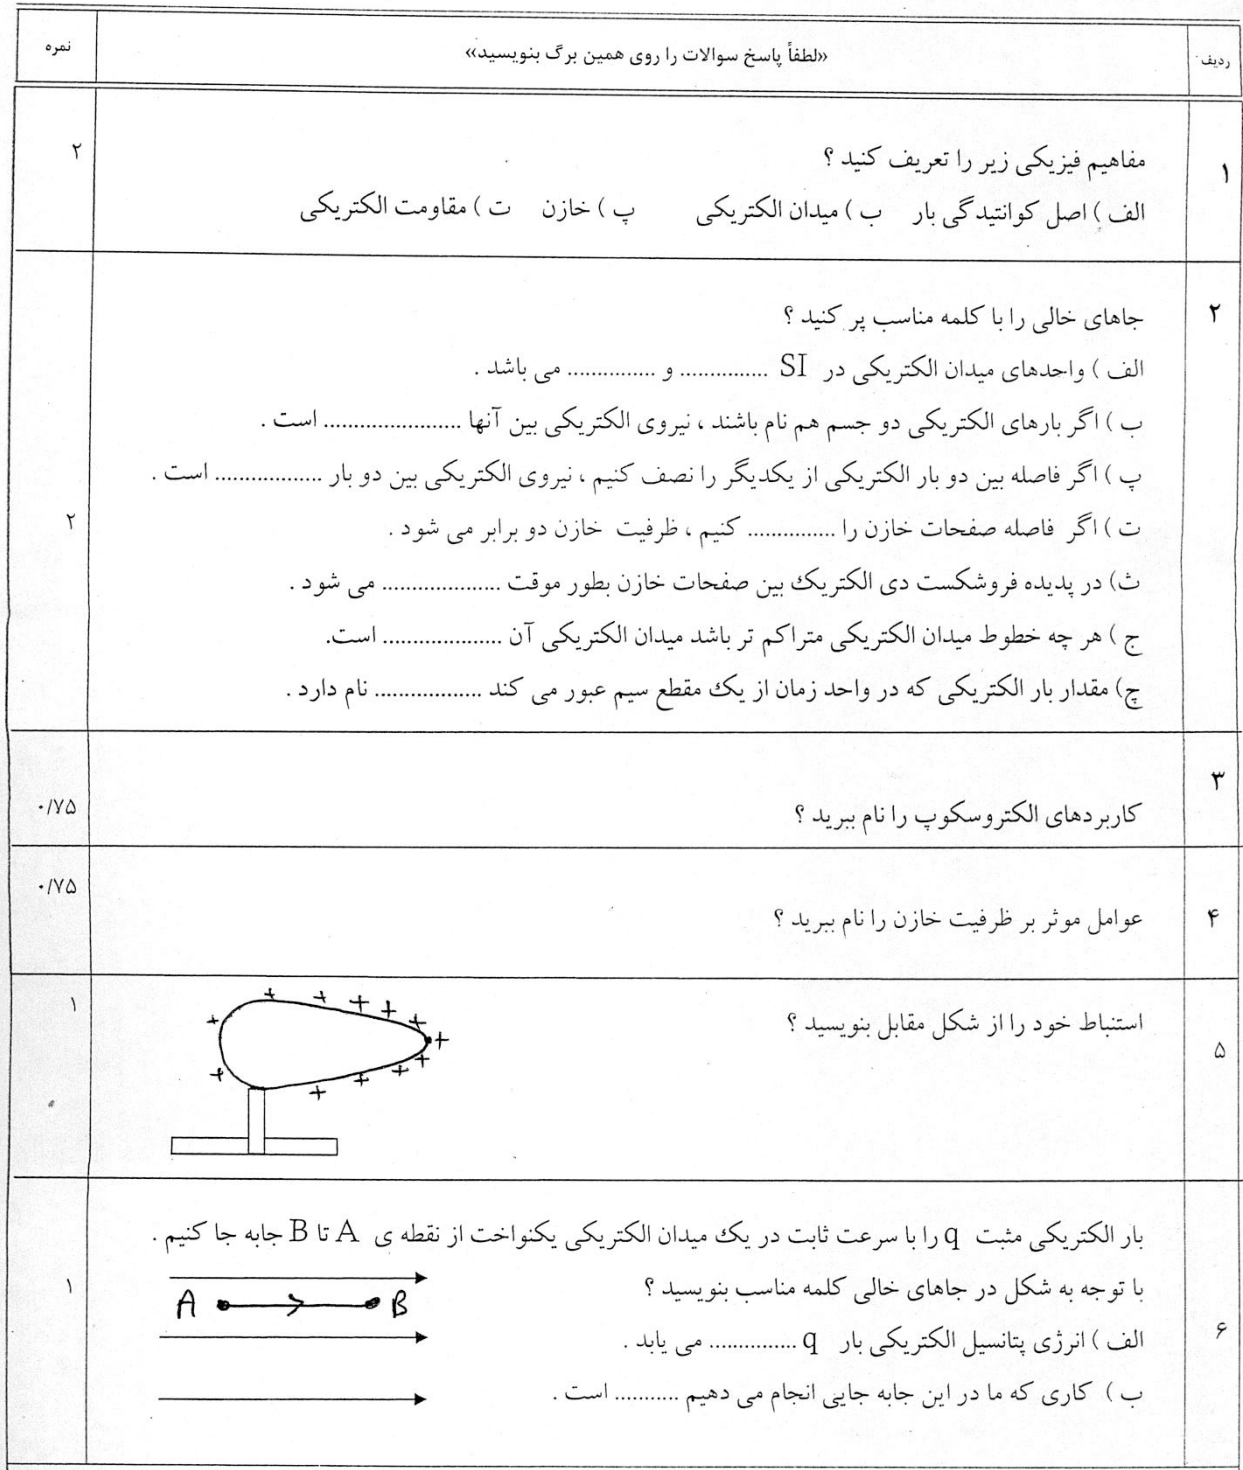 ردیف «لطفاً پاسخ سوالات را روی همین برگ بنویسید» نمره
۱ مفاهیم فیزیکی زیر را تعریف کنید ؟ ۲
الف ) اصل کوانتیدگی بار ب ) میدان الکتریکی پ ) خازن ت ) مقاومت الکتریکی
۲ جاهای خالی را با کلمه مناسب پر کنید ؟
الف ) واحدهای میدان الکتریکی در SI ............... و ............... می باشد .
ب ) اگر بارهای الکتریکی دو جسم هم نام باشند ، نیروی الکتریکی بین آنها ....................... است .
پ ) اگر فاصله بین دو بار الکتریکی از یکدیگر را نصف کنیم ، نیروی الکتریکی بین دو بار .................. است .
ت ) اگر فاصله صفحات خازن را ............... کنیم ، ظرفیت خازن دو برابر می شود . ۲
ث) در پدیده فروشکست دی الکتریک بین صفحات خازن بطور موقت .................... می شود .
ج ) هر چه خطوط میدان الکتریکی متراکم تر باشد میدان الکتریکی آن .................... است.
چ) مقدار بار الکتریکی که در واحد زمان از یک مقطع سیم عبور می کند .................. نام دارد .
۳ کاربردهای الکتروسکوپ را نام ببرید ؟ ۰/۷۵
۴ عوامل موثر بر ظرفیت خازن را نام ببرید ؟ ۰/۷۵
۵ استنباط خود را از شکل مقابل بنویسید ؟ ۱
+ + + + + + + + + + + +
بار الکتریکی مثبت q را با سرعت ثابت در یک میدان الکتریکی یکنواخت از نقطه ی A تا B جابه جا کنیم .
با توجه به شکل در جاهای خالی کلمه مناسب بنویسید ؟ ۱
A B
۶ الف ) انرژی پتانسیل الکتریکی بار q ............... می یابد .
ب ) کاری که ما در این جابه جایی انجام می دهیم ........... است .